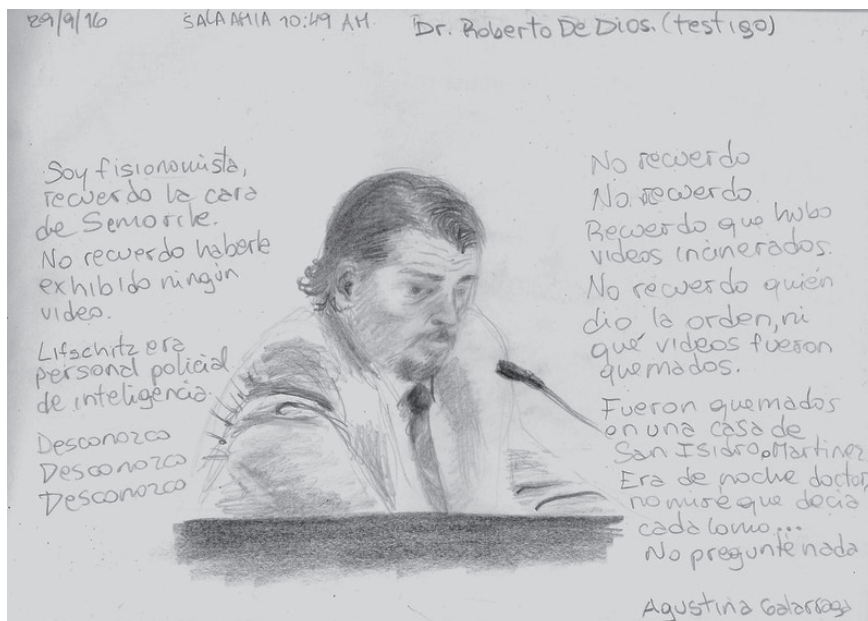 29/9/16 SALA AMIA 10:49 AM. Dr. Roberto De Dios. (testigo)
Soy fisionomista,
recuerdo la cara
de Semorile.
No recuerdo haberle
exhibido ningún
video.
Lifschitz era
personal policial
de inteligencia.
Desconozco
Desconozco
Desconozco
No recuerdo
No recuerdo.
Recuerdo que hubo
videos incinerados.
No recuerdo quién
dio la orden, ni
qué videos fueron
quemados.
Fueron quemados
en una casa de
San Isidro o Martinez
Era de noche doctor,
no miré que decía
cada lomo...
No pregunté nada
Agustina Galarraga